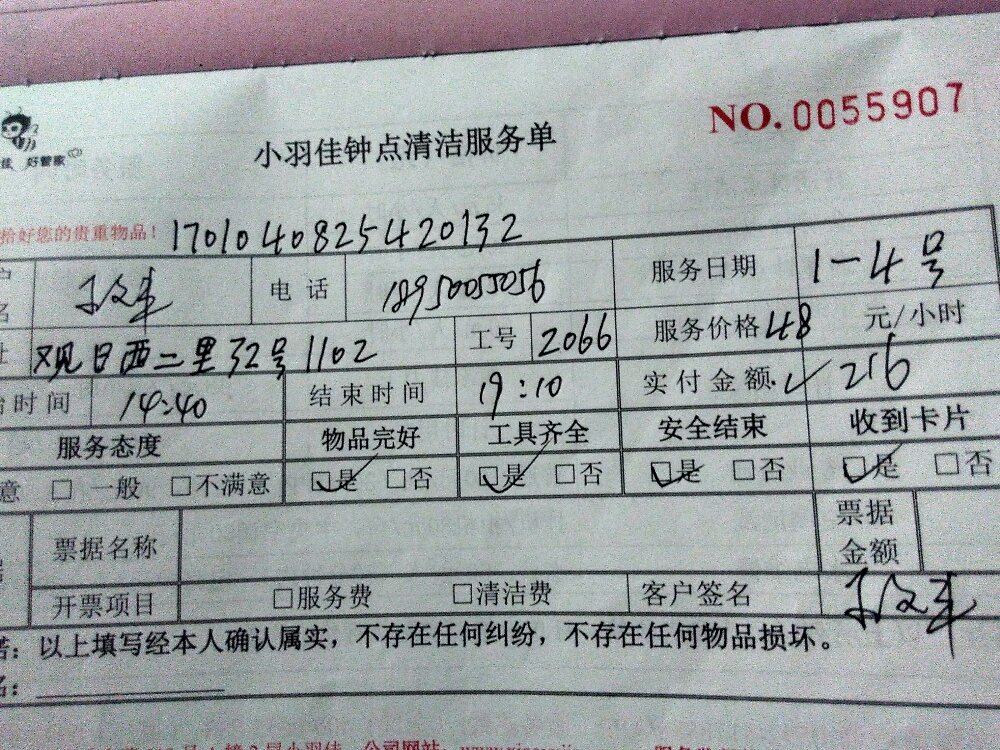 NO.0055907
小羽佳钟点清洁服务单
佳 好管家
拾好您的贵重物品! 1701040825420132
名 电话 18950055056 服务日期 1-4号
址 观日西二里32号1102 工号 2066 服务价格 48 元/小时
始时间 14:40 结束时间 19:10 实付金额 216
服务态度 物品完好 工具齐全 安全结束 收到卡片
意 □ 一般 □不满意 □是 □否 □是 □否 □是 □否 □是 □否
票据名称 票据金额
开票项目 □服务费 □清洁费 客户签名
诺:以上填写经本人确认属实,不存在任何纠纷,不存在任何物品损坏。
名:
小羽佳 公司网站: